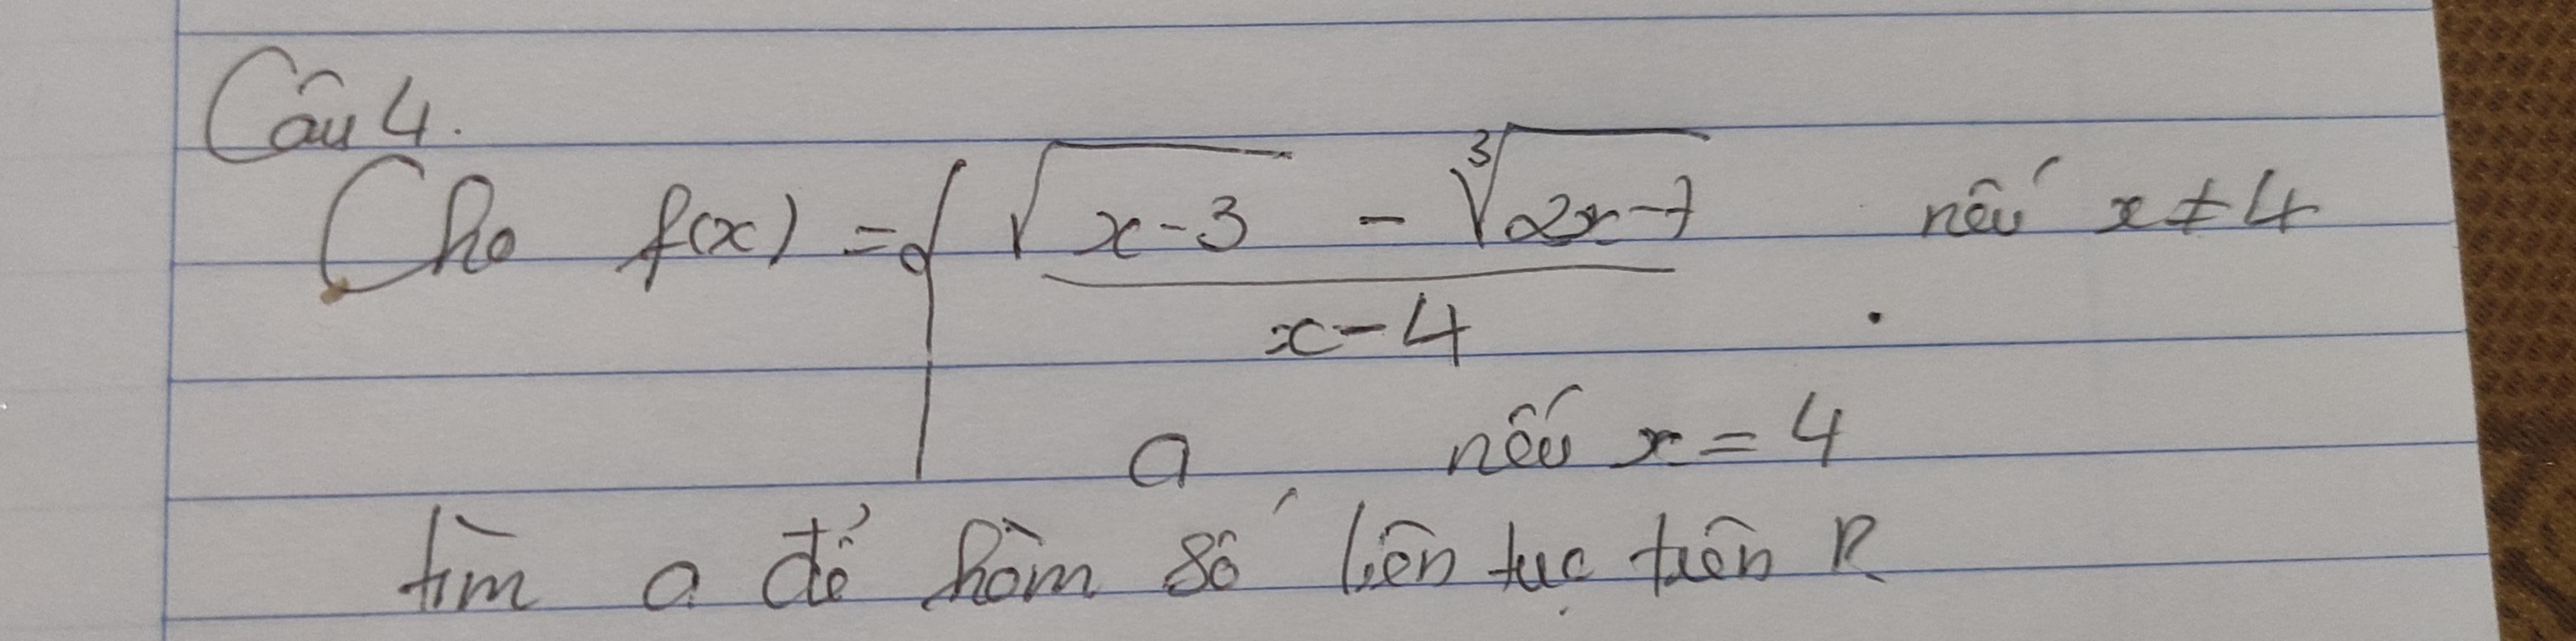 Câu 4.
Cho f(x) = { √(x-3) - ∛(2x-7) nếu x ≠ 4
x-4
a nếu x = 4
tìm a để hàm số liên tục trên R